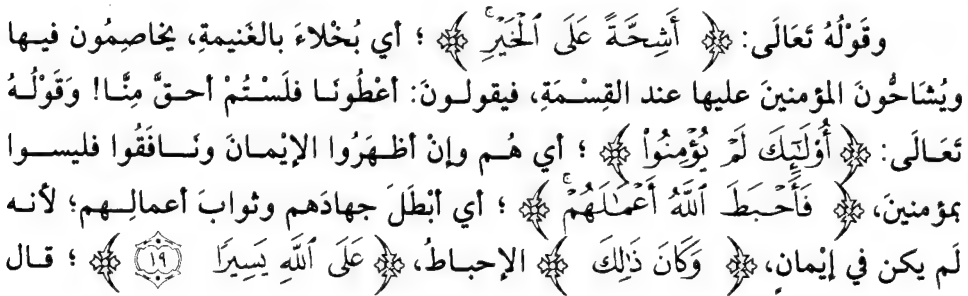 وقَوْلُهُ تَعَالَى: ﴿ أَشِحَّةً عَلَى ٱلْخَيْرِۚ ﴾ ؛ أي بُخْلاءَ بالغَنيمةِ، يخاصِمُون فيها
ويُشَاحُّونَ المؤمنينَ عليها عند القِسْمَةِ، فيقولونَ: أعْطُونَا فلَسْتُمْ أحقَّ مِنَّا! وَقَوْلُهُ
تَعَالَى: ﴿ أُوْلَـٰٓئِكَ لَمْ يُؤْمِنُواْ ﴾ ؛ أي هُم وإنْ أظهَرُوا الإيْمانَ ونَافَقُوا فليسوا
بمؤمنينَ، ﴿ فَأَحْبَطَ ٱللَّهُ أَعْمَـٰلَهُمْۚ ﴾ ؛ أي أبْطَلَ جهادَهم وثوابَ أعمالِهم؛ لأنه
لَم يكن في إيْمانٍ، ﴿ وَكَانَ ذَٰلِكَ ﴾ الإحباطُ، ﴿ عَلَى ٱللَّهِ يَسِيرًا ١٩ ﴾ ؛ قال